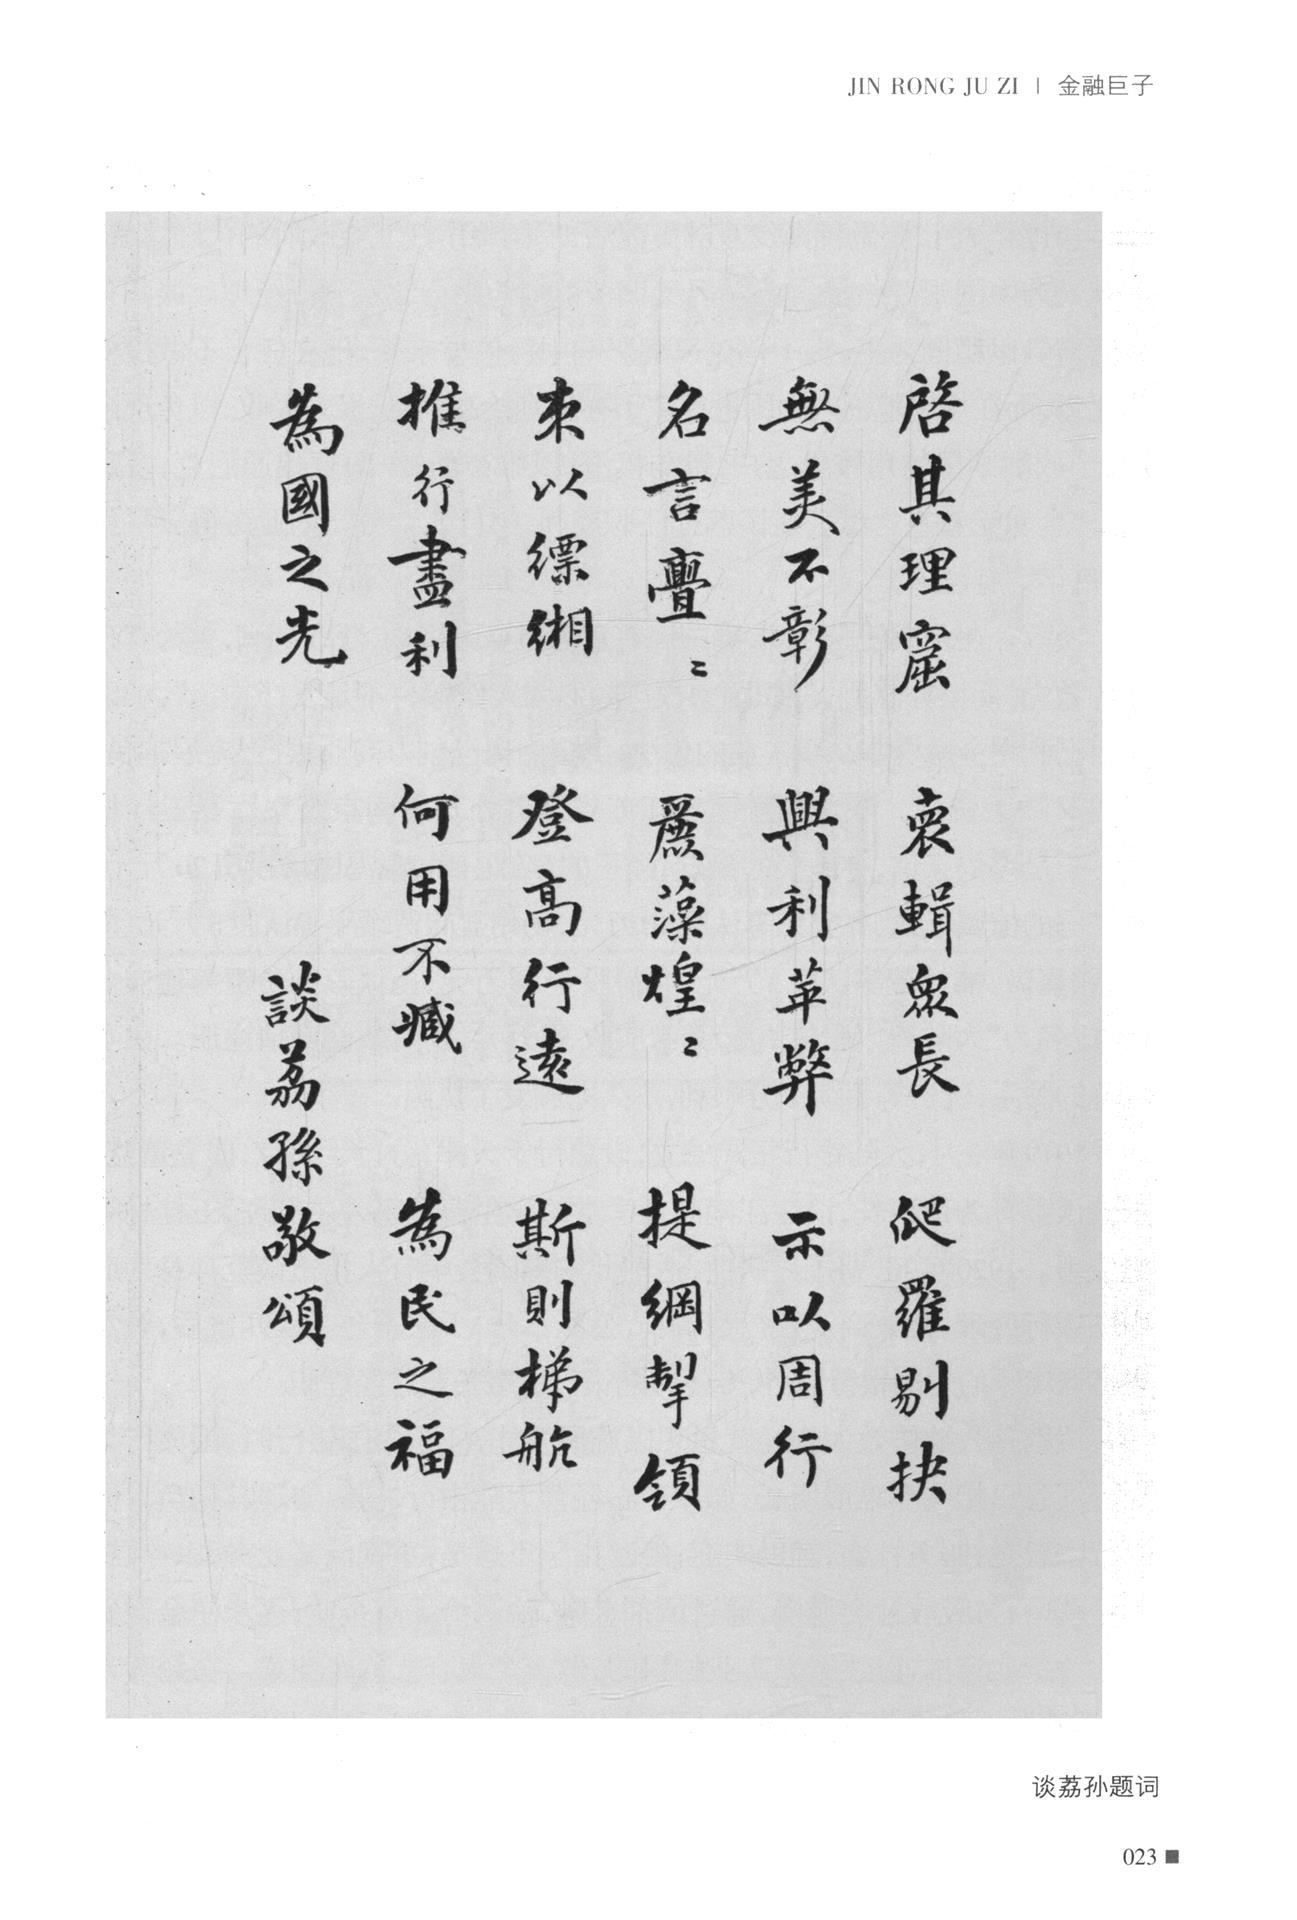 JIN RONG JU ZI | 金融巨子
啓其理窟 裒輯衆長 爬羅剔抉
無美不彰 興利革弊 示以周行
名言亹〻 麗藻煌〻 提綱挈領
束以縹緗 登高行遠 斯則梯航
推行盡利 何用不臧 為民之福
為國之光 談荔孫敬頌
谈荔孙题词
023